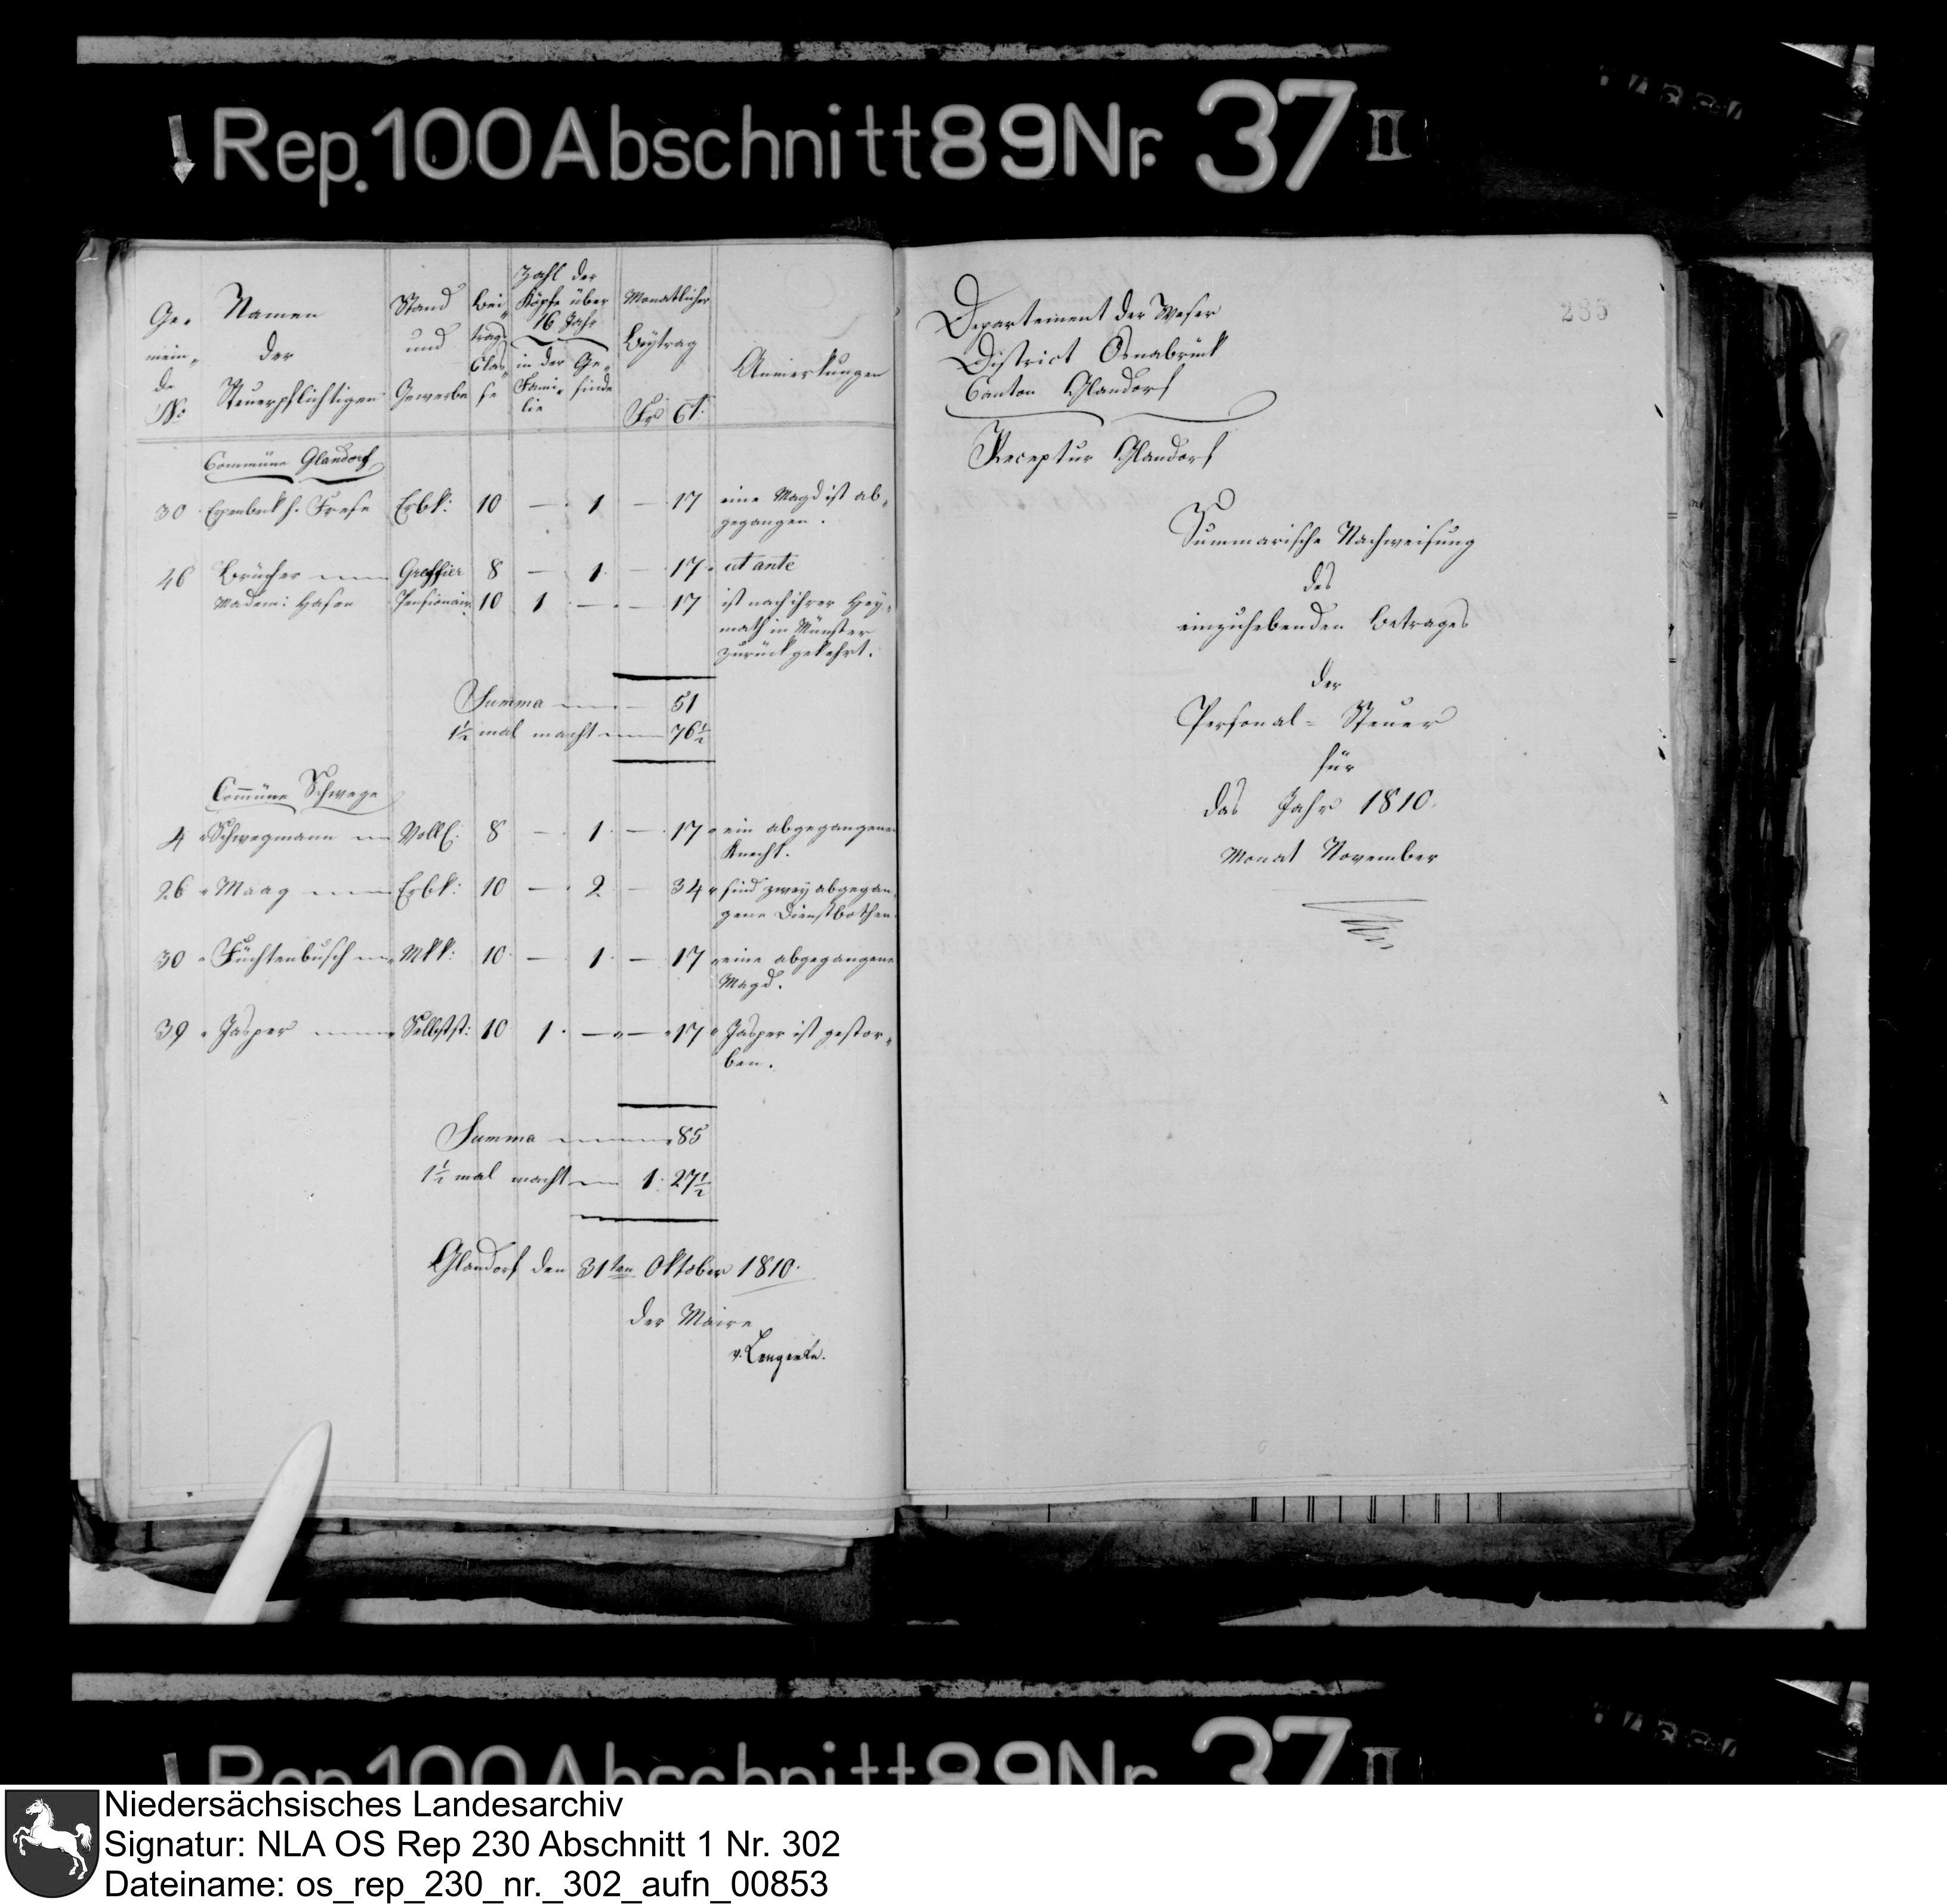 Rep. 100 Abschnitt 89 Nr. 37 II
Ge-
mein-
de
No:
Namen
der
Steuerpflichtigen
Stand
und
Gewerbe
Bei-
trags
Clas-
se
Zahl der
Köpfe über
16 Jahr
in der
Fami-
lie
Ge-
sinde
Monatlicher
Beytrag
Fr Ct.
Anmerkungen
Commüne Glandorf
30 Frese Erbk: 10 — 1 — 17 eine Magd ist ab-
gegangen.
46 Brücher Greffier 8 — 1 — 17 ut ante
Madem: Hasen Pensionair 10 1 — — 17 ist nach ihrer Hey-
math in Münster
zurückgekehrt.
Summa — 51
1½ mal macht 76½
Commüne Schwege
4 Schwegmann Volle. 8 — 1 — 17 ein abgegangener
Knecht.
26 Maag Erbk: 10 — 2 — 34 sind zwey abgegan-
gene Dienstbothen.
30 Füchtenbusch Mkk: 10 — 1 — 17 eine abgegangene
Magd.
39 Jasper 10 1 — — 17 Jasper ist gestor-
ben.
Summa 85
1½ mal macht 1. 27½
Glandorf den 31ten Oktober 1810.
Der Maire
v. Lengerke.
285
Departement der Weser
District Osnabrück
Canton Glandorf
Receptur Glandorf
Summarische Nachweisung
des
einzuhebenden Betrages
der
Personal-Steuer
für
das Jahr 1810.
Monat November
Rep. 100 Abschnitt 89 Nr. 37 II
Niedersächsisches Landesarchiv
Signatur: NLA OS Rep 230 Abschnitt 1 Nr. 302
Dateiname: os_rep_230_nr._302_aufn_00853